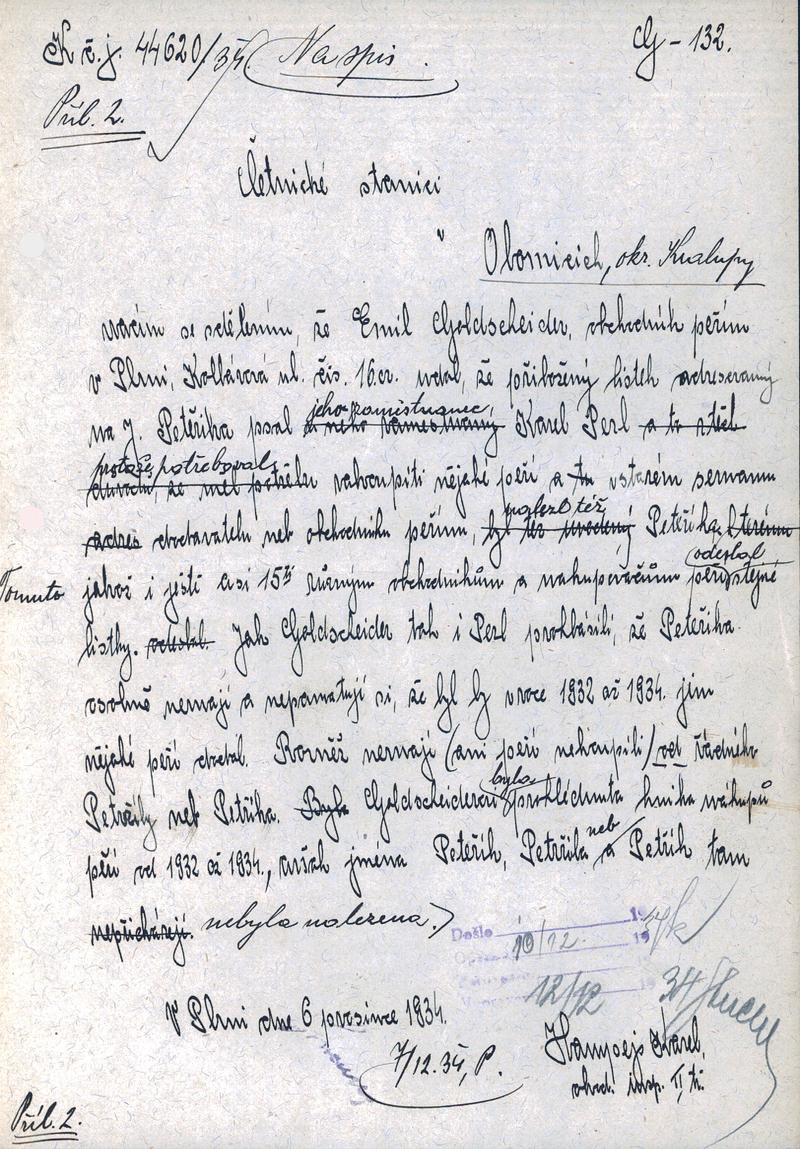 K č.j. 44620/34. Na spis.
G - 132.
Příl. 2.
Četnické stanici
v
Obornicích, okr. Kralupy
vracím se sdělením, že Emil Goldscheider, obchodník peřím
v Plzni, Kollárova ul. čís. 16. udal, že přiložený lístek adresovaný
na J. Peteříka psal jeho zaměstnanec, Karel Perl a to
protože potřeboval nakoupiti nějaké peří a ve starém seznamu
dodavatelů neb obchodníků peřím, nalezl též Peteříka, kterému
Tomuto jakož i ještě asi 15ti různým obchodníkům a nakupovačům peří odeslal stejné
lístky. odeslal. Jak Goldscheider tak i Perl prohlásili, že Peteříka
osobně neznají a nepamatují si, že byl by v roce 1932 až 1934. jim
nějaké peří dodal. Rovněž neznají (ani peří nekoupili) od žádného
Petržily neb Petříka. Byla Goldscheiderovi byla prohlédnuta kniha nákupů
peří od 1932 až 1934., avšak jména Peteřík, Petržila neb a Petřík tam
nepřicházejí. nebyla nalezena.
Došlo 19
10/12. 19
12/12 34
V Plzni dne 6 prosince 1934.
7/12. 34, P.
Hampejs Karel,
obvod. insp. II tř.
Příl. 2.